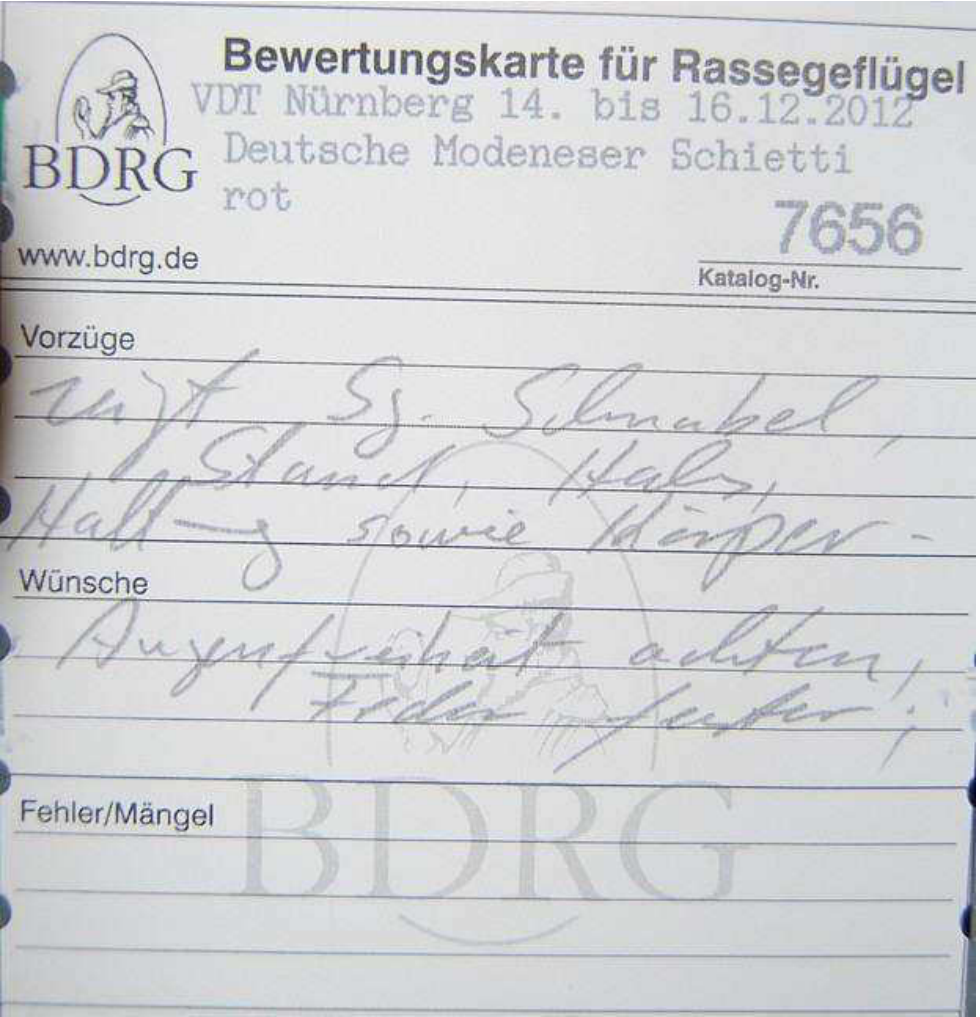 Bewertungskarte für Rassegeflügel
VDT Nürnberg 14. bis 16.12.2012
BDRG
Deutsche Modeneser Schietti
rot
7656
www.bdrg.de
Katalog-Nr.
Vorzüge
zeigt Sg. Schnabel,
Stand, Hals,
Haltung sowie Körper -
Wünsche
Augenfreiheit achten,
Feder fester;
BDRG
Fehler/Mängel